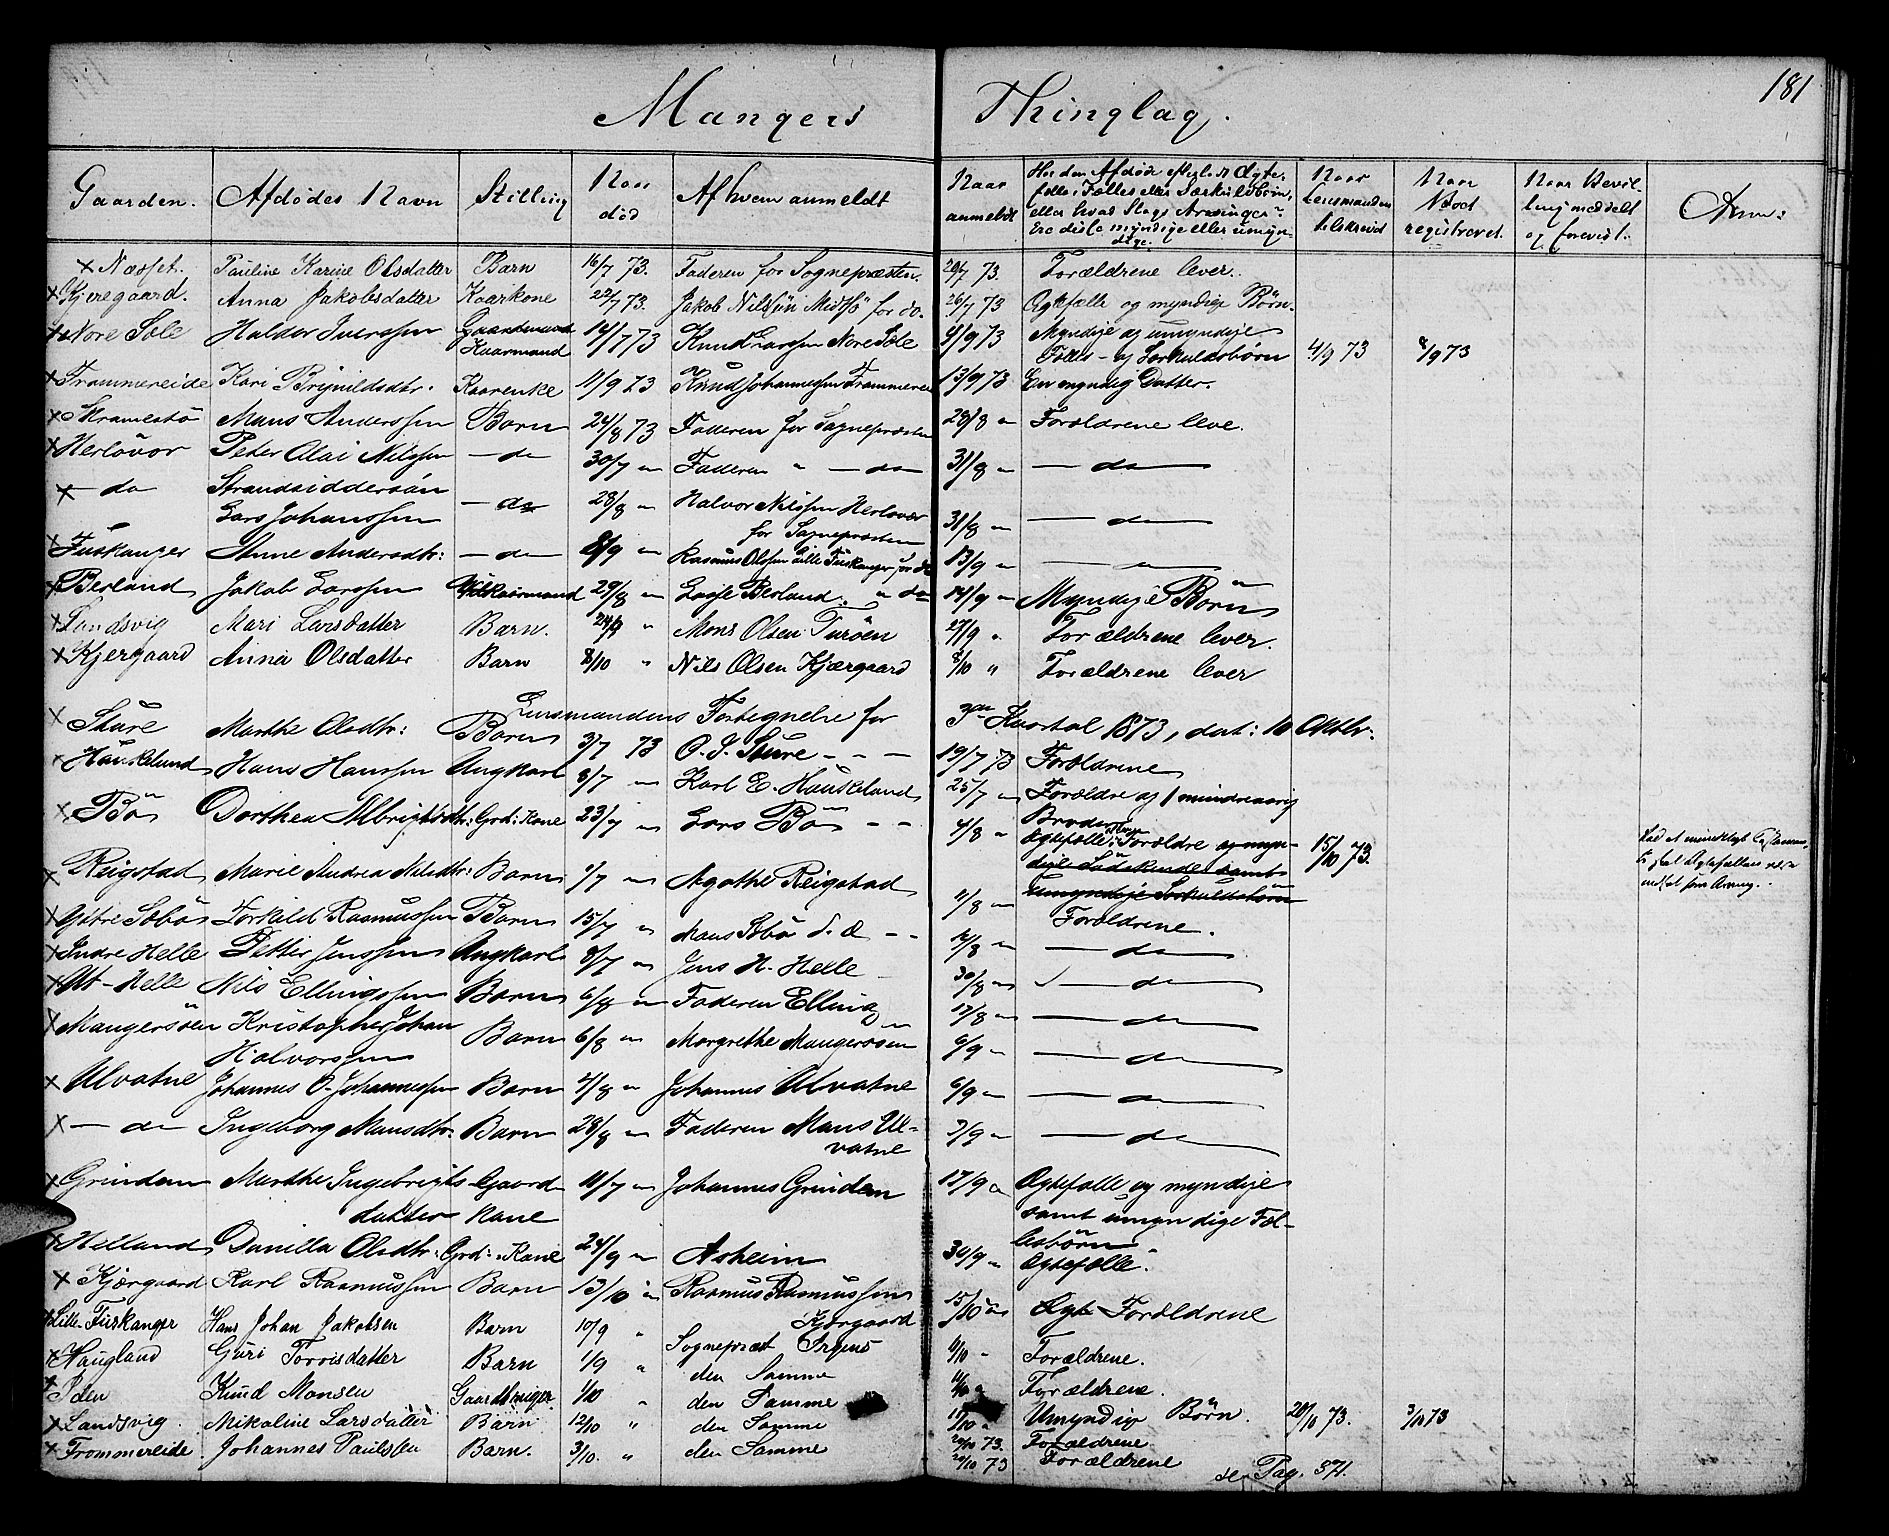 181
Mangers Thinglag.
Gaarden. Afdødes Navn Stilling Naar død Af hvem anmeldt Naar anmeldt Har den Afdøde efterladt Ægte-
fælle, Fælles eller Særkuldbörn,
eller hvad Slags Arvinger?
Ere disse myndige eller umyn-
dige. Naar Lensmanden tilskrevid Naar Boet registreret. Naar Bevil-
ling meddelt
og forevist. Anm:
x Næsset. Pauline Karine Olsdatter Barn 16/7 73. Faderen for Sognepræsten. 20/7 73. Forældrene lever.
x Kjeregaard. Anna Jakobsdatter Kaarkone 22/7 73. Jakob Nilssön Midtsö for do. 26/7 73 Ægtefælle og myndige Börn.
x Nore Sole Haldor Iverssen Gaardmand Kaarmand 14/7 73 Knud Larssen Nore Sole 4/9 73 Myndige og umyndige
Fælles- og Særkuldsbörn 4/9 73 8/9 73
x Frammereide Kari Brynildsdtr. Kaarenke 11/9 73 Knud Johannessen Frammereide 13/9 73 En myndig Datter.
x Skramestö Mans Anderssen Barn 24/8 73 Faderen for Sognepræsten 28/8 " Forældrene leve.
x Herlövor Peter Olai Nilssen - do 30/7 " Faderen " - do 31/8 " - do
x - do Strandsiddersön
Lars Johanssen - do 28/8 " Halvor Nilssen Herlövær
for Sognepræsten 31/8 " - do
x Fuskanger Anne Andersdtr: - do 8/9 " Rasmus Olssen Lille Fuskanger for do 13/9 " - do
x Berland Jakob Larssen Vilkaarmand 29/8 " Lasse Berland. " do 14/9 " Myndige Börn
x Landsvig Mari Larsdatter Barn. 24/9 " Mons Olsen Turöen 27/9 " Forældrene lever.
x Kjergaard Anna Olsdatter Barn 8/10 " Nils Olsen Kjærgaard 8/10 " Forældrene lever
Lensmandens Fortegnelse for 3die Kvartal 1873, dat: 10 Oktbr.
x Sture Marthe Olsdtr: Barn 3/7 73 O. J. Sture - - - 19/7 73 Forældrene
x Hauskelund Hans Hanssen Ungkarl 8/7 " Karl E. Hauskeland 25/7 " Forældre og 1 mindreaarig
Broder
x Bö Dorthea Albrigtsdtr: Grd: Kone 23/7 " Lars Bö - - 4/8 " Ægtefælle, Forældre og myn-
dige Södskende samt
umyndige Særkuldsbörn 15/10 73.
x Reigstad Marie Andrea Nilsdtr: Barn 1/7 " Agathe Reigstad 11/8 " Forældrene.
x Ytre Sæbö Torkild Rasmussen Barn 15/7 " Mons Sæbö - - 12/8 " - do
x Indre Helle Petter Jenssen Ungkarl 8/7 " Jens H. Helle 30/8 " - do
x Ut-Helle Nils Ellingssen Barn 6/8 " Faderen Elling 17/8 " - do
x Mangersöen Kristopher Johan
Halvorssen Barn 6/8 " Margrethe Mangersöen 6/9 " - do
x Ulvatne Johannes O. Johannessen Barn 4/8 " Johannes Ulvatne 6/9 " - do
x - do Ingeborg Mansdtr: Barn 28/8 " Faderen Mans Ul-
vatne 7/9 " - do
x Grindem Marthe Ingebrigts-
datter Gaard-
kone 11/7 " Johannes Grindem 17/9 " Ægtefælle og myndige
samt umyndige Fæl-
lesbörn.
x Helland Danilla Olsdtr: Grd: Kone 24/9 " Asheim 30/9 " Ægtefælle.
x Kjærgaard Karl Rasmussen Barn 13/10 " Rasmus Rasmussen
Kjærgaard 15/10 " Forældrene
x Lille Fuskanger Hans Johan Jakobsen Barn 10/9 " Sognepræst Irgens 9/10 " Forældrene.
x Haugland Guri Torrisdatter Barn 1/9 " den Samme Forældrene.
x Iden Knud Monsen Gaardbruger 1/10 " den Samme Umyndige Börn. 20/10 73. 3/11 73
x Landsvig. Mikaline Larsdatter Barn 12/10 " den Samme 20/10 73. Forældrene.
x Frommereide Johannes Paulsen Barn. 3/10. " den Samme 20/10 73 Forældrene
se Pag. 371.